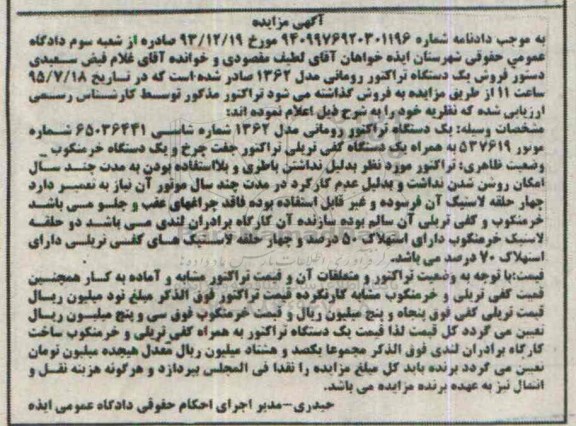 آگهی مزایده
به موجب دادنامه شماره ۹۴۰۹۹۷۶۹۲۰۳۰۱۱۹۶ مورخ ۹۳/۱۲/۱۹ صادره از شعبه سوم دادگاه
عمومی حقوقی شهرستان ایذه خواهان آقای لطیف مقصودی و خوانده آقای غلام فیض سعیدی
دستور فروش یک دستگاه تراکتور رومانی مدل ۱۳۶۲ صادر شده است که در تاریخ ۹۵/۷/۱۸
ساعت ۱۱ از طریق مزایده به فروش گذاشته می شود تراکتور مذکور توسط کارشناس رسمی
ارزیابی شده که نظریه خود را به شرح ذیل اعلام نموده اند:
مشخصات وسیله: یک دستگاه تراکتور رومانی مدل ۱۳۶۲ شماره شاسی ۶۵۰۳۶۴۴۱ شماره
موتور ۵۳۷۶۱۹ به همراه یک دستگاه کفی تریلی تراکتور جفت چرخ و یک دستگاه خرمنکوب _
وضعیت ظاهری: تراکتور مورد نظر بدلیل نداشتن باطری و بلااستفاده بودن به مدت چند سال
امکان روشن شدن نداشت و بدلیل عدم کارکرد در مدت چند سال موتور آن نیاز به تعمیر دارد
چهار حلقه لاستیک آن فرسوده و غیر قابل استفاده بوده فاقد چراغهای عقب و جلو می باشد
خرمنکوب و کفی تریلی آن سالم بوده سازنده آن کارگاه برادران لندی می باشد دو حلقه
لاستیک خرمنکوب دارای استهلاک ۵۰ درصد و چهار حلقه لاستیک های کفی تریلی دارای
استهلاک ۷۰ درصد می باشد.
قیمت:با توجه به وضعیت تراکتور و متعلقات آن و قیمت تراکتور مشابه و آماده به کار همچنین
قمیت کفی تریلی و خرمنکوب مشابه کارنکرده قیمت تراکتور فوق الذکر مبلغ نود میلیون ریال
قیمت تریلی کفی فوق پنجاه و پنج میلیون ریال و قیمت خرمنکوب فوق سی و پنج میلیون ریال
تعیین می گردد کل قیمت لذا قیمت یک دستگاه تراکتور به همراه کفی تریلی و خرمنکوب ساخت
کارگاه برادران لندی فوق الذکر مجموعا یکصد و هشتاد میلیون ریال معدل هیجده میلیون تومان
تعیین می گردد برنده باید کل مبلغ مزایده را نقدا فی المجلس بپردازد و هرگونه هزینه نقل و
انتقال نیز به عهده برنده مزایده می باشد.
حیدری-مدیر اجرای احکام حقوقی دادگاه عمومی ایذه